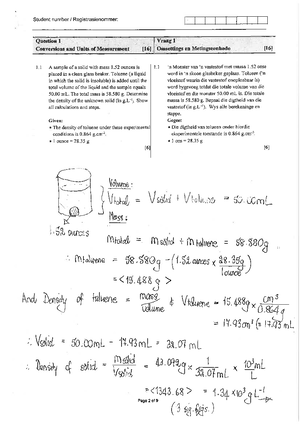 Student number / Registrasienommer:
Question 1
Conversions and Units of Measurement [16]
Vraag 1
Omsettings en Metingseenhede [16]
1.1 A sample of a solid with mass 1.52 ounces is
placed in a clean glass beaker. Toluene (a liquid
in which the solid is insoluble) is added until the
total volume of the liquid and the sample equals
50.00 mL. The total mass is 58.580 g. Determine
the density of the unknown solid (in g.L⁻¹). Show
all calculations and steps.
Given:
• The density of toluene under these experimental
conditions is 0.864 g.cm⁻³.
• 1 ounce = 28.35 g
[6]
1.1 'n Monster van 'n vastestof met massa 1.52 ons
word in 'n skoon glasbeker geplaas. Tolueen ('n
vloeistof waarin die vastestof onoplosbaar is)
word bygevoeg totdat die totale volume van die
vloeistof en die monster 50.00 mL is. Die totale
massa is 58.580 g. Bepaal die digtheid van die
vastestof (in g.L⁻¹). Wys alle berekeninge en
stappe.
Gegee:
• Die digtheid van tolueen onder hierdie
eksperimentele toestande is 0.864 g.cm⁻³.
• 1 ons = 28,35 g
[6]
Volume:
Vtotal = Vsolid + Vtoluene = 50.00mL
Mass:
1.52 ounces
mtotal = msolid + mtoluene = 58.580g
∴ mtoluene = 58.580g - (1.52 ounces × 28.35g / 1 ounce)
= <15.488 g>
And Density of toluene = mass / volume & Vtoluene = 15.488g × cm³ / 0.864g
= 17.93cm³ = 17.93 mL
∴ Vsolid = 50.00mL - 17.93mL = 32.07mL
∴ Density of solid = msolid / Vsolid = 43.092g × 1 / 32.07 mL × 10³mL / L
= <1343.68> = 1.34 × 10³ g L⁻¹
Page 2 of 9
(3 sig. figs.)